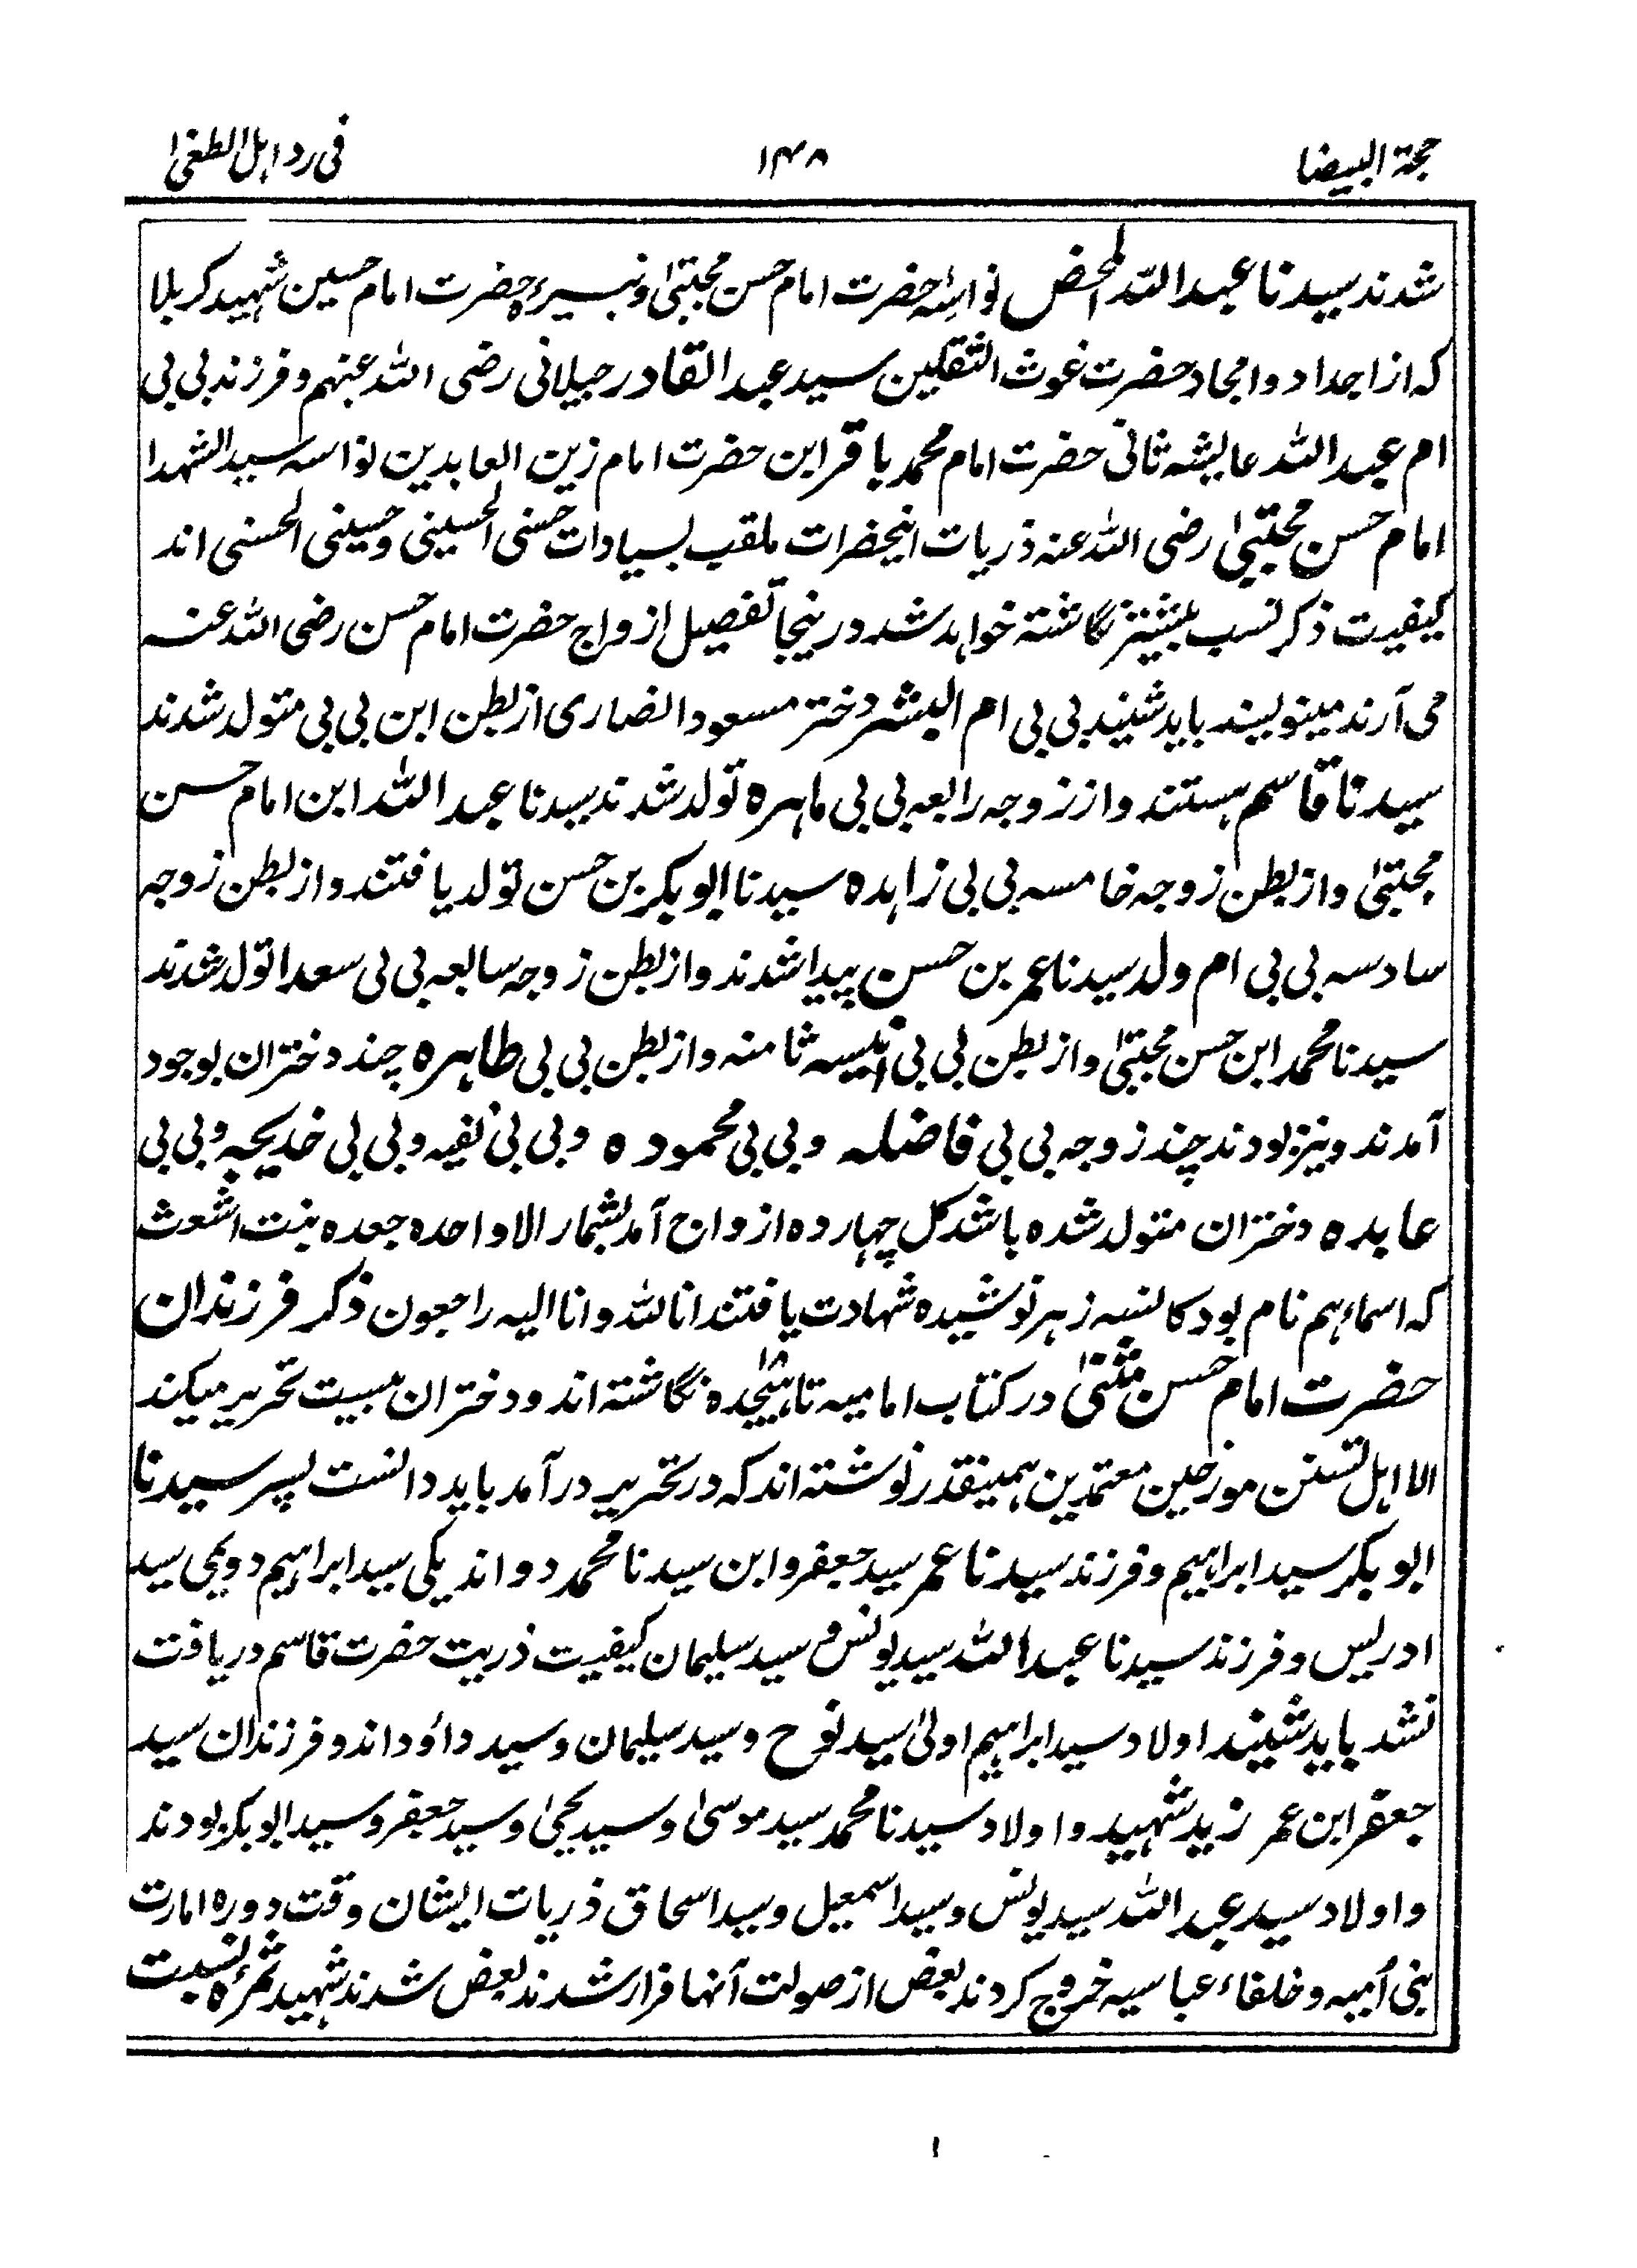 حجة البیضا
۱۴۸
فی رد اہل الطغیٰ
شدند سیدنا عبد اللہ المحض نواسہ حضرت امام حسن مجتبیٰ و نبسیرہ حضرت امام حسین شہید کربلا
کہ از اجداد و امجاد حضرت غوث الثقلین سید عبد القادر جیلانی رضی اللہ عنہم و فرزند بی بی
ام عبد اللہ عایشہ ثانی حضرت امام محمد باقر ابن حضرت امام زین العابدین نواسہ سید الشہدا
امام حسن مجتبیٰ رضی اللہ عنہ ذریات اینحضرات ملقب بسیادات حسنی الحسینی و حسینی الحسنی اند
کیفیت ذکر نسب بیشتر نگاشتہ خواہد شد درینجا تفصیل ازواج حضرت امام حسن رضی اللہ عنہ
می آرند مینویسند باید شنید بی بی ام البشر دختر مسعود انصاری از بطن ابن بی بی متولد شدند
سیدنا قاسم ہستند و از زوجہ رابعہ بی بی ماہرہ تولد شدند سیدنا عبد اللہ ابن امام حسن
مجتبیٰ و از بطن زوجہ خامسہ بی بی زاہدہ سیدنا ابوبکر بن حسن تولد یافتند و از بطن زوجہ
سادسہ بی بی ام ولد سیدنا عمر بن حسن پیدا شدند و از بطن زوجہ سابعہ بی بی سعدا تولد شدند
سیدنا محمد ابن حسن مجتبیٰ و از بطن بی بی انیسہ ثامنہ و از بطن بی بی طاہرہ چند دختران بوجود
آمدند و نیز بودند چند زوجہ بی بی فاضلہ و بی بی محمودہ و بی بی نفیہ و بی بی خدیجہ و بی بی
عابدہ دختران متولد شدہ باشد کل چہاردہ ازواج آمد بشمار الا واحدہ جعدہ بنت اشعث
کہ اسماء ہم نام بود کاسہ زہر نوشیدہ شہادت یافتند انا للہ وانا الیہ راجعون ذکر فرزندان
حضرت امام حسن مثنیٰ در کتاب امامیہ تا ہیجدہ ۱۸ نگاشتہ اند و دختران بیست تحریر میکند
الا اہل تسنن مورخین معتمدین ہمینقدر نوشتہ اند کہ در تحریر در آمد باید دانست پسر سیدنا
ابوبکر سید ابراہیم و فرزند سیدنا عمر سید جعفر و ابن سیدنا محمد دو اند یکی سید ابراہیم دویمی سید
ادریس و فرزند سیدنا عبد اللہ سید یونس و سید سلیمان کیفیت ذریت حضرت قاسم دریافت
نشد باید شنید اولاد سید ابراہیم اولیٰ سید نوح و سید سلیمان و سید داؤد اند و فرزندان سید
جعفر ابن عمر زید شہید و اولاد سیدنا محمد سید موسیٰ و سید یحییٰ و سید جعفر و سید ابوبکر بودند
و اولاد سید عبد اللہ سید یونس و سید اسمعیل و سید اسحاق ذریات ایشان وقت دورہ امارت
بنی اُمیہ و خلفاء عباسیہ خروج کردند بعض از صولت آنہا فرار شدند بعض شدند شہید ثمرۂ نسبت